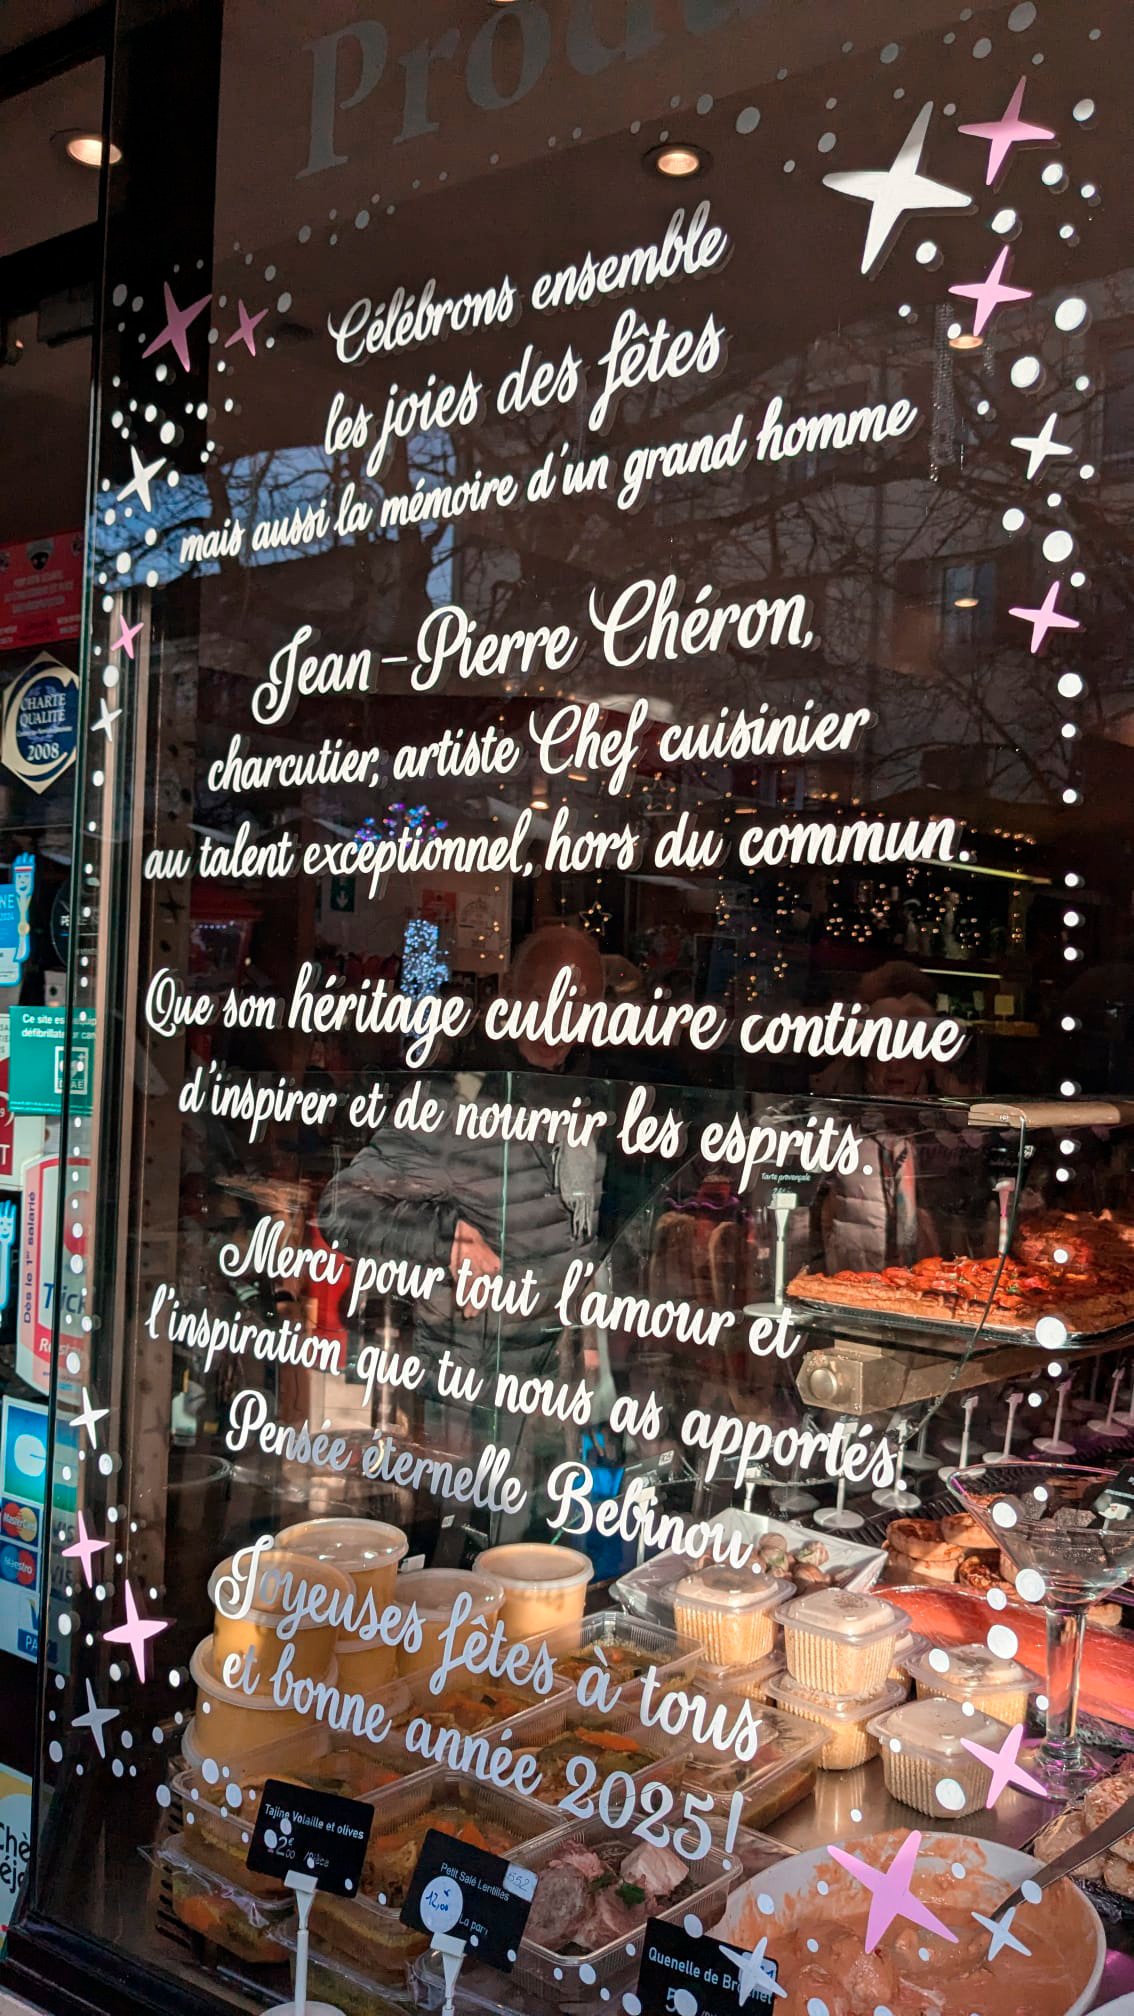 Produ
Célébrons ensemble
les joies des fêtes
mais aussi la mémoire d'un grand homme
Jean-Pierre Chéron,
charcutier, artiste Chef cuisinier
au talent exceptionnel, hors du commun.
Que son héritage culinaire continue
d'inspirer et de nourrir les esprits.
Merci pour tout l'amour et
l'inspiration que tu nous as apportés.
Pensée éternelle Bebinou.
Joyeuses fêtes à tous
et bonne année 2025!
CHARTE
QUALITÉ
2008
Ce site es
défibrillate
Dès le 1er salarié
Tick
MasterCard
Maestro
VISA
Tarte provençale
Tajine Volaille et olives
12€00 /Pièce
Petit Salé Lentilles
12,00€
La part
Quenelle de Brochet